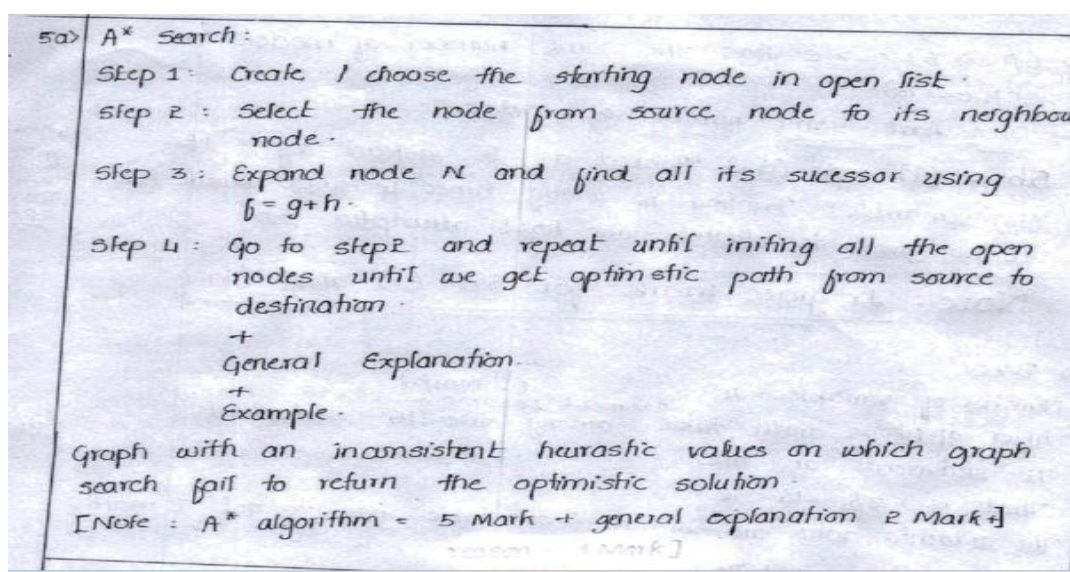 5a> A* Search:
Step 1: Create / choose the starting node in open list.
Step 2: Select the node from source node to its neighbou
node.
Step 3: Expand node N and find all its sucessor using
f = g+h.
Step 4: Go to step2 and repeat until initing all the open
nodes until we get optimstic path from source to
destination.
+
General Explanation.
+
Example.
Graph with an inconsistent heurastic values on which graph
search fail to return the optimistic solution.
[Note: A* algorithm = 5 Mark + general explanation 2 Mark +]
reason - 1 Mark]